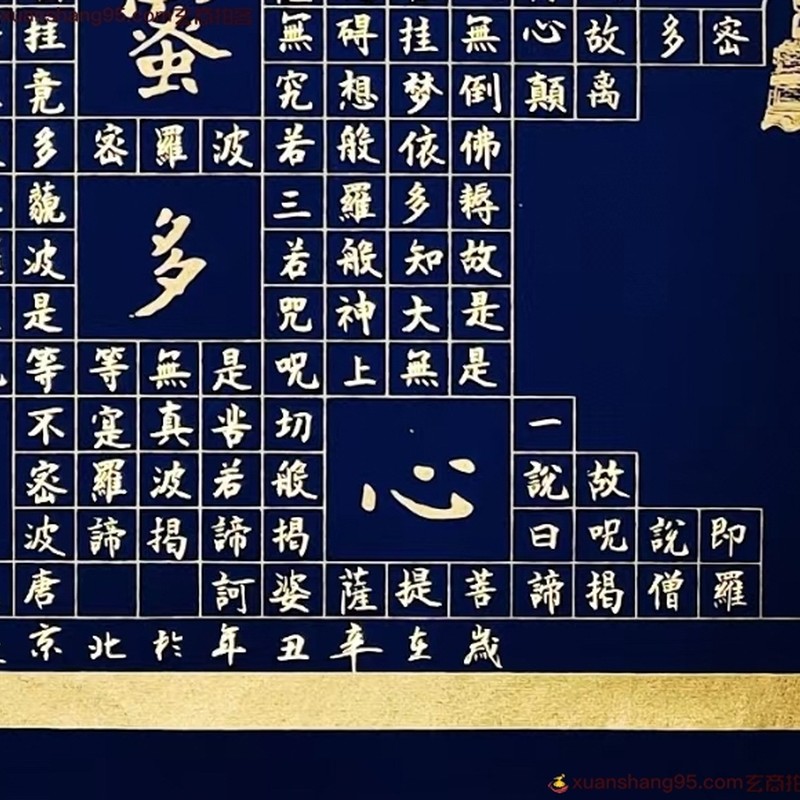 xuanshang95.com玄商拍
密多故心無挂碍無挂
离顛倒梦想究竟
佛依般若波羅密多
耨多羅三藐
多
故知般若波
是大神咒是
是無上呪是無等等
一切苦真寔不
心
故說般若波羅密
即說呪曰揭諦揭諦波
羅僧揭諦菩提薩婆訶唐
歲在辛丑年於北京
xuanshang95.com玄商拍